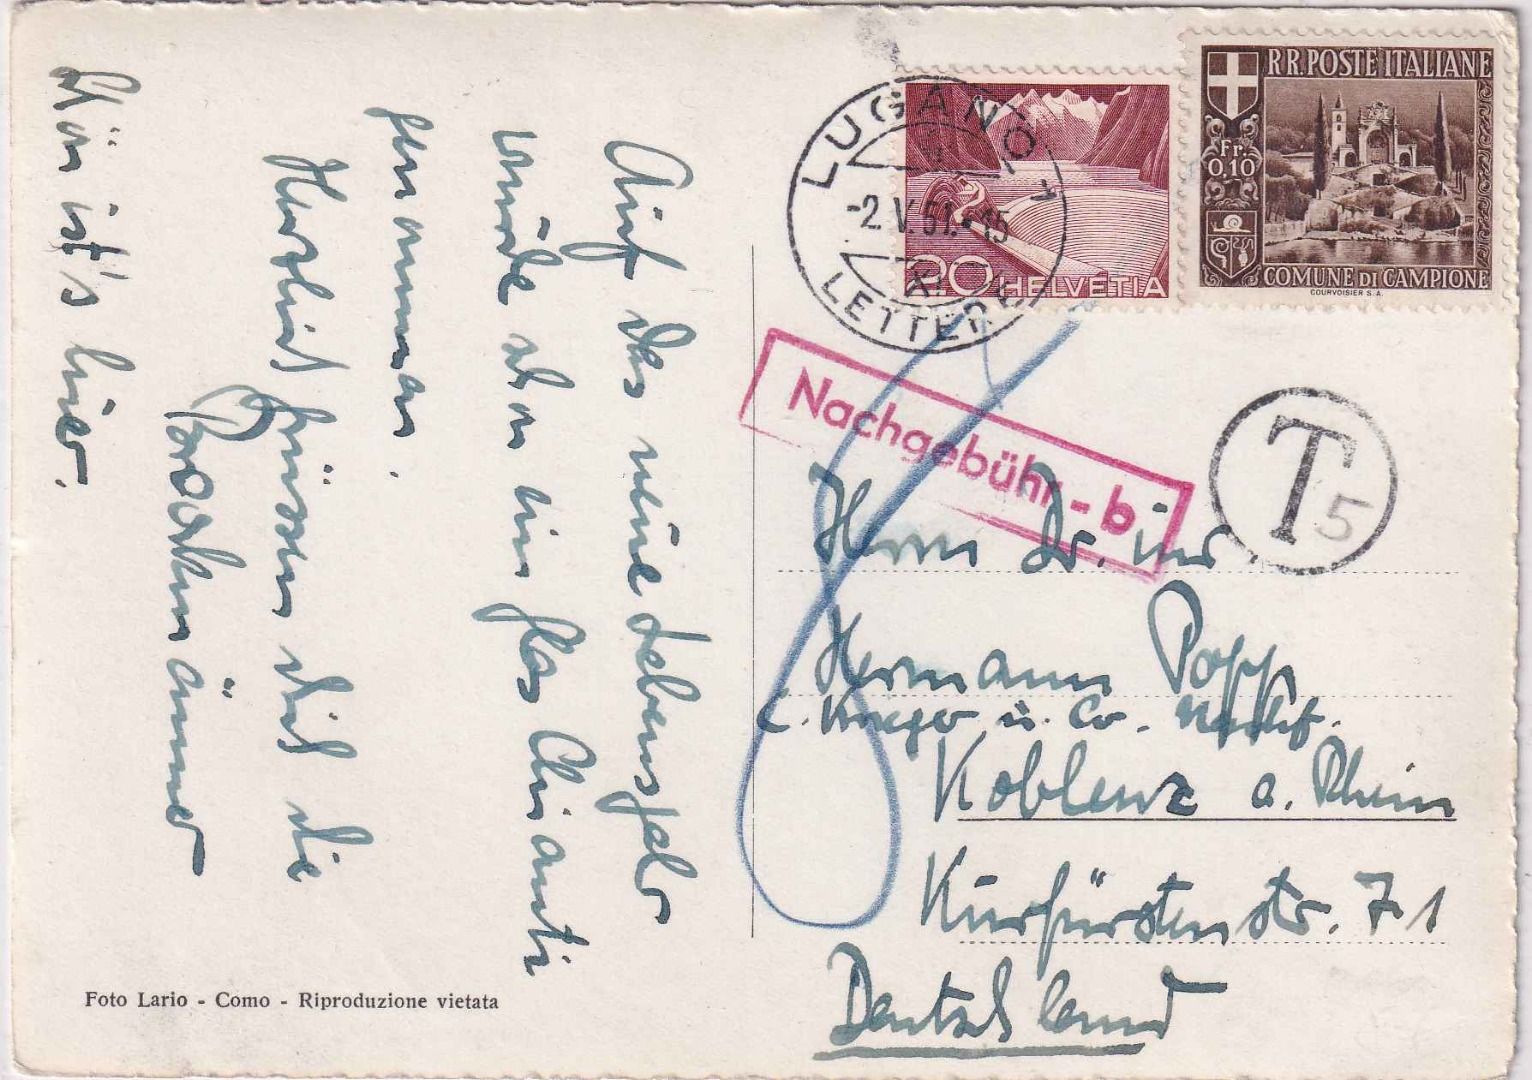 Auf das neue Lebensjahr
wurde schon ein Glas Chianti
genommen.
Herzlich grüssen Dich die
Schön ist's hier.
Foto Lario - Como - Riproduzione vietata
LUGANO 1
-2.V.51.-15
LETTERE
20 HELVETIA
RR. POSTE ITALIANE
Fr. 0,10
COMUNE DI CAMPIONE
COURVOISIER S.A.
Nachgebühr - b
T 5
Herrn Dr. iur
Hermann Popp
Koblenz a. Rhein
Kurfürstenstr. 71
Deutschland